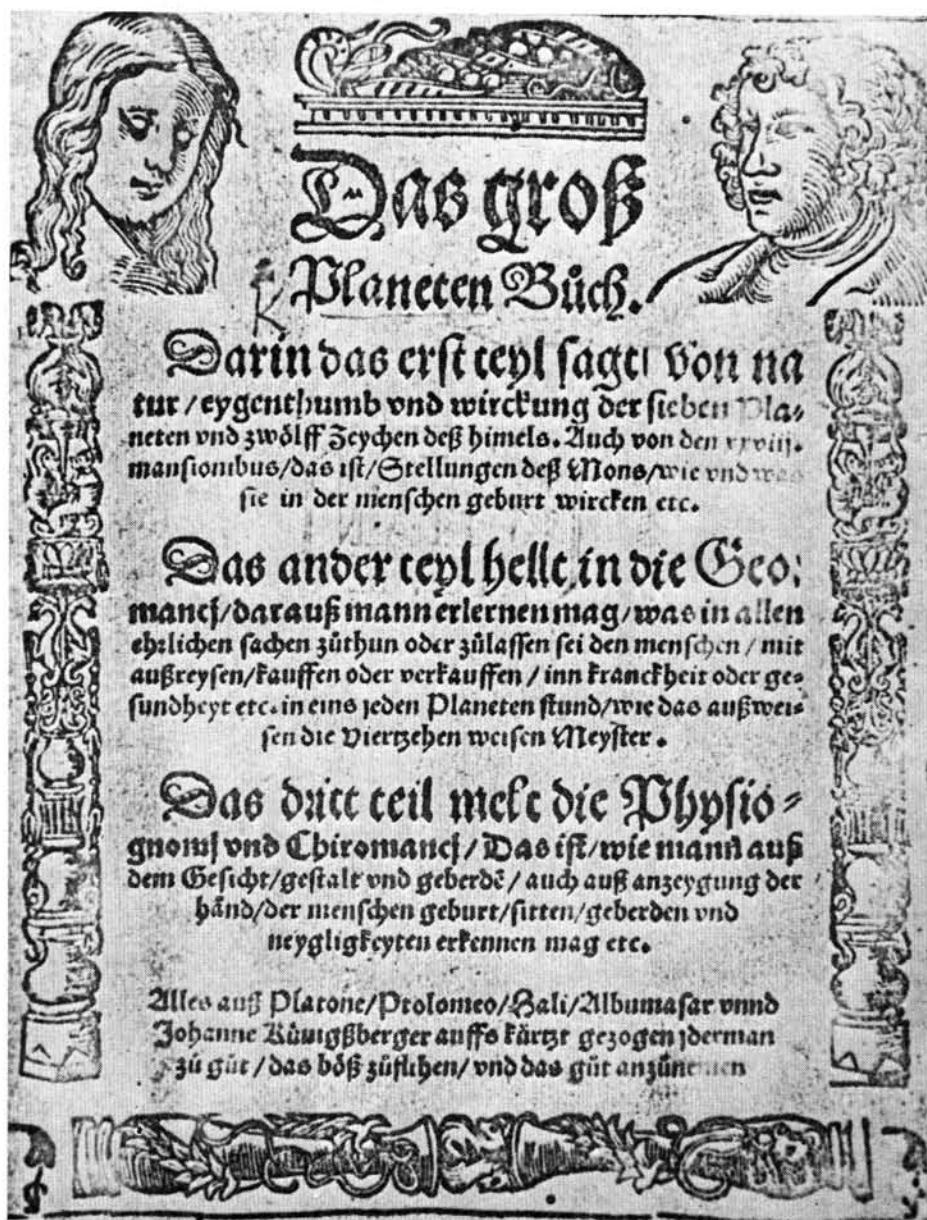 Das groß
Planeten Bůch.
Darin das erst teyl sagt von na
tur / eygenthumb vnd wirckung der sieben Pla-
neten vnd zwölff Zeychen deß himels. Auch von den xxviij.
mansionibus/das ist/Stellungen deß Mons/wie vnd was
sie in der menschen geburt wircken etc.
Das ander teyl hellt in die Geo-
mancj/darauß mann erlernen mag/was in allen
ehrlichen sachen zůthun oder zůlassen sei den menschen / mit
außreysen/kauffen oder verkauffen / inn kranckheit oder ge-
sundheyt etc. in eins jeden Planeten stund/wie das außwei-
sen die Viertzehen weisen Meyster.
Das dritt teil melt die Physio-
gnomj vnd Chiromancj / Das ist/wie mann auß
dem Gesicht/gestalt vnd geberdē / auch auß anzeygung der
händ/der menschen geburt/sitten/geberden vnd
neygligkeyten erkennen mag etc.
Alles auß Platone/Ptolomeo/Hali/Albumasar vnnd
Johanne Künigßberger auffs kürtzt gezogen jderman
zů gůt / das böß zůflihen/ vnd das gůt anzůnemen